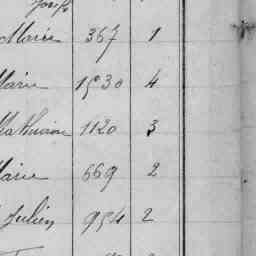 Marie 367 1
Marie 1530 4
Mathurin 1120 3
Marie 669 2
Julien 954 2